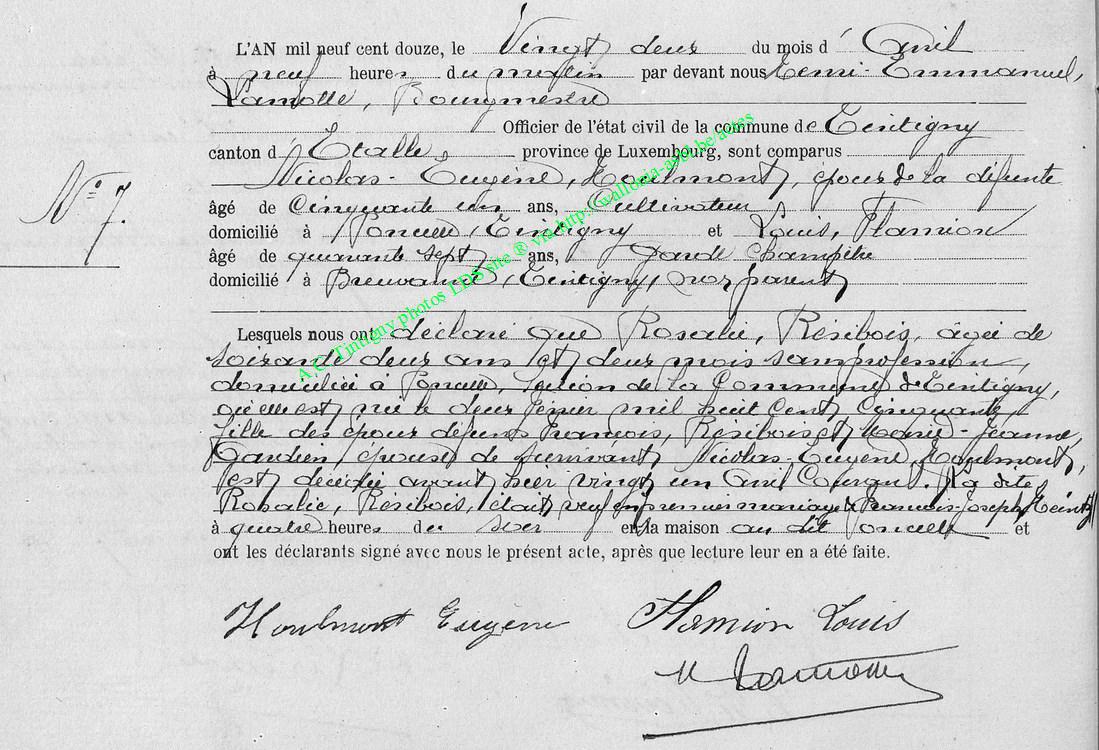 L'AN mil neuf cent douze, le Vingt deux du mois d' Avril
à neuf heures du matin par devant nous Henri-Emmanuel,
Lamotte, Bourgmestre
Officier de l'état civil de la commune de Tintigny
canton d' Etalle, province de Luxembourg, sont comparus
Nicolas-Eugène, Houlmont, époux de la défunte
N° 7.
âgé de Cinquante un ans, Cultivateur
domicilié à Poncelle, Tintigny et Louis, Flamion
âgé de quarante sept ans, Garde Champêtre
domicilié à Breuvanne, Tintigny, non parent
Lesquels nous ont déclaré que Rosalie, Résibois, âgée de
soixante deux ans et deux mois sans profession,
domiciliée à Poncelle, section de la Commune de Tintigny,
où elle est née le deux février mil huit cent cinquante,
fille des époux défunts François, Résibois et Marie-Jeanne,
épouse de survivant Nicolas-Eugène, Houlmont,
est décédée avant hier vingt un Avril Courant. La dite
Rosalie, Résibois, était veuve en premier mariage de François-Joseph
à quatre heures du soir en la maison au dit Poncelle et
ont les déclarants signé avec nous le présent acte, après que lecture leur en a été faite.
Houlmont Eugène Flamion Louis
H Lamotte
A.C. Tintigny photos LDS site ® via http://wallonia-asbl.be/actes